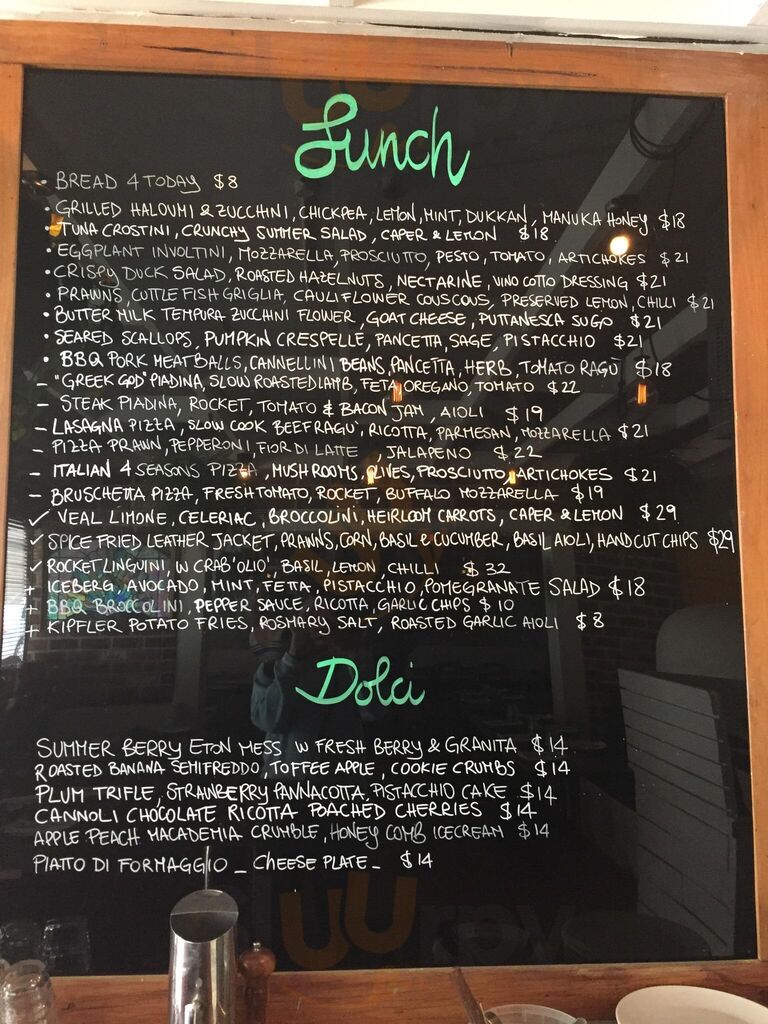 Lunch
• BREAD 4 TODAY $8
• GRILLED HALOUMI & ZUCCHINI, CHICKPEA, LEMON, MINT, DUKKAN, MANUKA HONEY $18
• TUNA CROSTINI, CRUNCHY SUMMER SALAD, CAPER & LEMON $18
• EGGPLANT INVOLTINI, MOZZARELLA, PROSCIUTTO, PESTO, TOMATO, ARTICHOKES $21
• CRISPY DUCK SALAD, ROASTED HAZELNUTS, NECTARINE, VINO COTTO DRESSING $21
• PRAWNS, CUTTLE FISH GRIGLIA, CAULIFLOWER COUSCOUS, PRESERVED LEMON, CHILLI $21
• BUTTER MILK TEMPURA ZUCCHINI FLOWER, GOAT CHEESE, PUTTANESCA SUGO $21
• SEARED SCALLOPS, PUMPKIN CRESPELLE, PANCETTA, SAGE, PISTACCHIO $21
• BBQ PORK MEATBALLS, CANNELLINI BEANS, PANCETTA, HERB, TOMATO RAGÙ $18
- "GREEK GOD" PIADINA, SLOW ROASTED LAMB, FETA, OREGANO, TOMATO $22
- STEAK PIADINA, ROCKET, TOMATO & BACON JAM, AIOLI $19
- LASAGNA PIZZA, SLOW COOK BEEF RAGU', RICOTTA, PARMESAN, MOZZARELLA $21
- PIZZA PRAWN, PEPPERONI, FIOR DI LATTE, JALAPENO $22
- ITALIAN 4 SEASONS PIZZA, MUSHROOMS, OLIVES, PROSCIUTTO, ARTICHOKES $21
- BRUSCHETTA PIZZA, FRESH TOMATO, ROCKET, BUFFALO MOZZARELLA $19
✓ VEAL LIMONE, CELERIAC, BROCCOLINI, HEIRLOOM CARROTS, CAPER & LEMON $29
✓ SPICE FRIED LEATHER JACKET, PRAWNS, CORN, BASIL & CUCUMBER, BASIL AIOLI, HAND CUT CHIPS $29
✓ ROCKET LINGUINI, W CRAB 'OLIO', BASIL, LEMON, CHILLI $32
+ ICEBERG, AVOCADO, MINT, FETA, PISTACCHIO, POMEGRANATE SALAD $18
+ BBQ BROCCOLINI, PEPPER SAUCE, RICOTTA, GARLIC CHIPS $10
+ KIPFLER POTATO FRIES, ROSMARY SALT, ROASTED GARLIC AIOLI $8
Dolci
SUMMER BERRY ETON MESS W FRESH BERRY & GRANITA $14
ROASTED BANANA SEMIFREDDO, TOFFEE APPLE, COOKIE CRUMBS $14
PLUM TRIFLE, STRAWBERRY PANNACOTTA, PISTACCHIO CAKE $14
CANNOLI CHOCOLATE RICOTTA POACHED CHERRIES $14
APPLE PEACH MACADEMIA CRUMBLE, HONEY COMB ICECREAM $14
PIATTO DI FORMAGGIO _ CHEESE PLATE _ $14